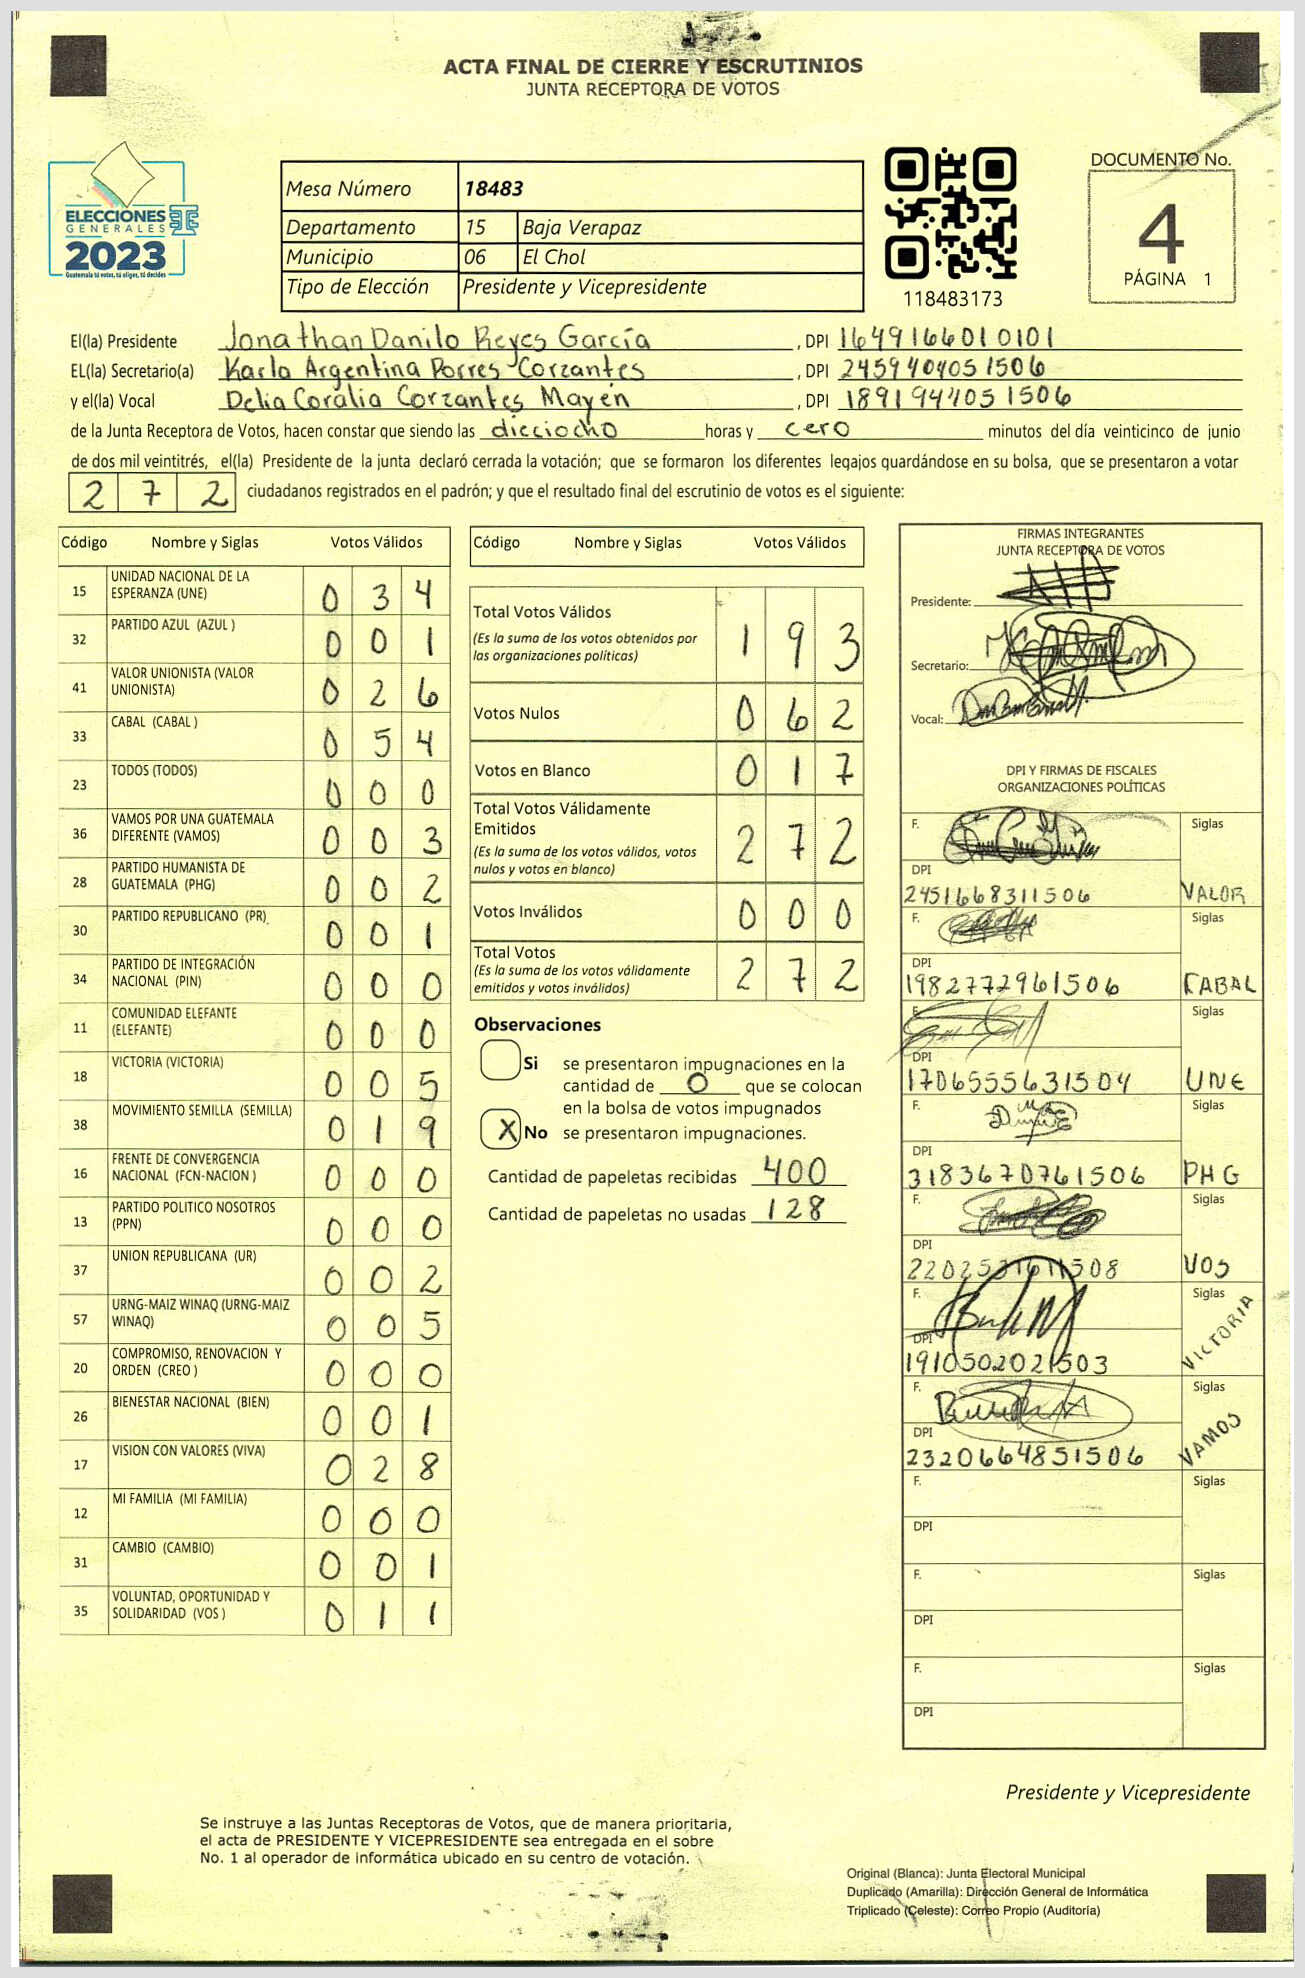 ACTA FINAL DE CIERRE Y ESCRUTINIOS
JUNTA RECEPTORA DE VOTOS
ELECCIONES
GENERALES
2023
Guatemala tú votas, tú eliges, tú decides
Mesa Número 18483
Departamento 15 Baja Verapaz
Municipio 06 El Chol
Tipo de Elección Presidente y Vicepresidente
118483173
DOCUMENTO No.
4
PÁGINA 1
El(la) Presidente Jonathan Danilo Reyes García, DPI 1649166010101
EL(la) Secretario(a) Karla Argentina Porres Corzantes, DPI 2459404051506
y el(la) Vocal Delia Coralia Corzantes Mayén, DPI 1891944051506
de la Junta Receptora de Votos, hacen constar que siendo las dieciocho horas y cero minutos del día veinticinco de junio
de dos mil veintitrés, el(la) Presidente de la junta declaró cerrada la votación; que se formaron los diferentes legajos guardándose en su bolsa, que se presentaron a votar
272 ciudadanos registrados en el padrón; y que el resultado final del escrutinio de votos es el siguiente:
Código Nombre y Siglas Votos Válidos
15 UNIDAD NACIONAL DE LA ESPERANZA (UNE) 0 3 4
32 PARTIDO AZUL (AZUL ) 0 0 1
41 VALOR UNIONISTA (VALOR UNIONISTA) 0 2 6
33 CABAL (CABAL ) 0 5 4
23 TODOS (TODOS) 0 0 0
36 VAMOS POR UNA GUATEMALA DIFERENTE (VAMOS) 0 0 3
28 PARTIDO HUMANISTA DE GUATEMALA (PHG) 0 0 2
30 PARTIDO REPUBLICANO (PR) 0 0 1
34 PARTIDO DE INTEGRACIÓN NACIONAL (PIN) 0 0 0
11 COMUNIDAD ELEFANTE (ELEFANTE) 0 0 0
18 VICTORIA (VICTORIA) 0 0 5
38 MOVIMIENTO SEMILLA (SEMILLA) 0 1 9
16 FRENTE DE CONVERGENCIA NACIONAL (FCN-NACION ) 0 0 0
13 PARTIDO POLITICO NOSOTROS (PPN) 0 0 0
37 UNION REPUBLICANA (UR) 0 0 2
57 URNG-MAIZ WINAQ (URNG-MAIZ WINAQ) 0 0 5
20 COMPROMISO, RENOVACION Y ORDEN (CREO ) 0 0 0
26 BIENESTAR NACIONAL (BIEN) 0 0 1
17 VISION CON VALORES (VIVA) 0 2 8
12 MI FAMILIA (MI FAMILIA) 0 0 0
31 CAMBIO (CAMBIO) 0 0 1
35 VOLUNTAD, OPORTUNIDAD Y SOLIDARIDAD (VOS ) 0 1 1
Código Nombre y Siglas Votos Válidos
Total Votos Válidos 1 9 3
(Es la suma de los votos obtenidos por
las organizaciones políticas)
Votos Nulos 0 6 2
Votos en Blanco 0 1 7
Total Votos Válidamente
Emitidos 2 7 2
(Es la suma de los votos válidos, votos
nulos y votos en blanco)
Votos Inválidos 0 0 0
Total Votos 2 7 2
(Es la suma de los votos válidamente
emitidos y votos inválidos)
Observaciones
Si se presentaron impugnaciones en la
cantidad de 0 que se colocan
en la bolsa de votos impugnados
X No se presentaron impugnaciones.
Cantidad de papeletas recibidas 400
Cantidad de papeletas no usadas 128
FIRMAS INTEGRANTES
JUNTA RECEPTORA DE VOTOS
Presidente:
Secretario:
Vocal:
DPI Y FIRMAS DE FISCALES
ORGANIZACIONES POLÍTICAS
F. Siglas
DPI
2451668311506 VALOR
F. Siglas
DPI
1982772961506 CABAL
F. Siglas
DPI
1706555631504 UNE
F. Siglas
DPI
3183670761506 PHG
F. Siglas
DPI
VOS
F. Siglas
DPI
1910502021503 VICTORIA
F. Siglas
DPI
2320664851506 VAMOS
F. Siglas
DPI
F. Siglas
DPI
F. Siglas
DPI
Presidente y Vicepresidente
Se instruye a las Juntas Receptoras de Votos, que de manera prioritaria,
el acta de PRESIDENTE Y VICEPRESIDENTE sea entregada en el sobre
No. 1 al operador de informática ubicado en su centro de votación.
Original (Blanca): Junta Electoral Municipal
Duplicado (Amarilla): Dirección General de Informática
Triplicado (Celeste): Correo Propio (Auditoría)